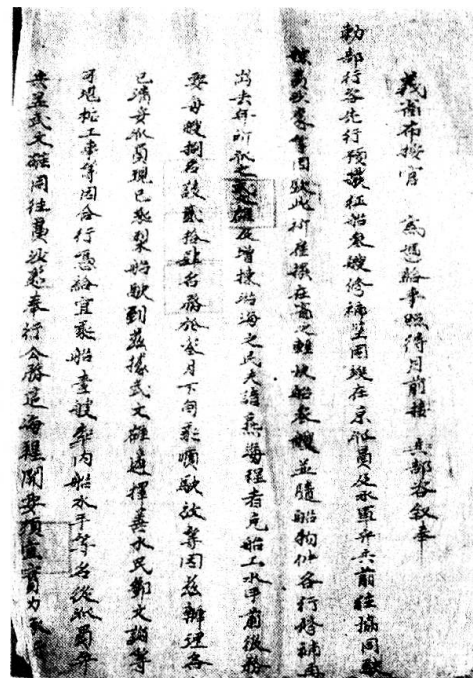 義省布按官 為憑給事照得月前接 兵部咨叙奉
勅部行各先行預撥征船叁艘修補堅固竢在京派員及水軍弁兵前往協同駛
黃沙處等因欽此祈應撥在省之輕快船叁艘並隨船物件各行修補再
出去年所派之武文雄及增揀沿海之民夫諳熟海程者充船工水手務
要每艘捌名該貳拾肆名務於叁月下旬乘順駛放等因茲辦理各
已清妥派員現已乘船駛到茲據武文雄遴擇善水民鄧文等
可堪柁工事等因合行憑給宜乘船壹艘率內船水手等名從派員弁
兵並武文雄同往黃沙處奉行公務這海程關要須宜實力承